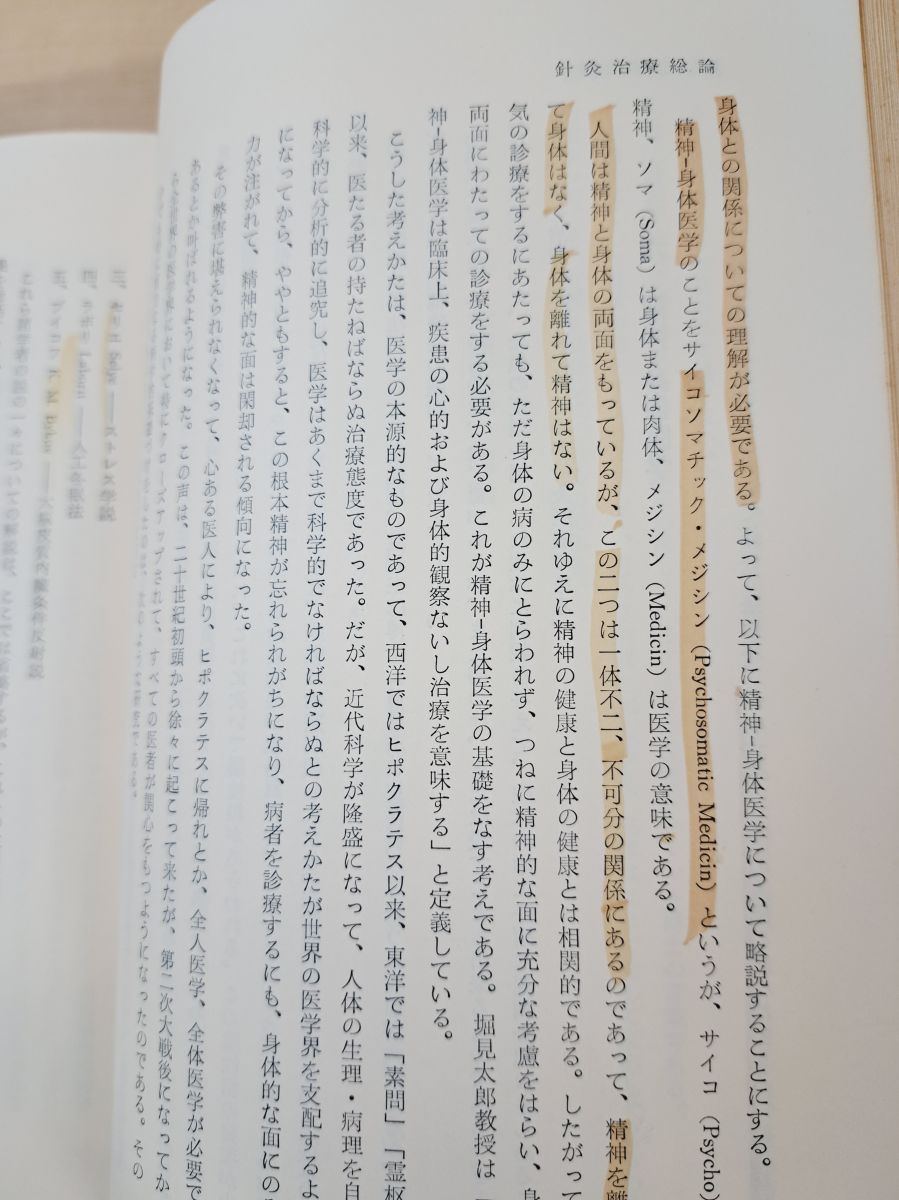 針灸治療総論
身体との関係についての理解が必要である。よって、以下に精神‐身体医学について略説することにする。
精神‐身体医学のことをサイコソマチック・メジシン（Psychosomatic Medicin）というが、サイコ（Psycho）
精神、ソマ（Soma）は身体または肉体、メジシン（Medicin）は医学の意味である。
人間は精神と身体の両面をもっているが、この二つは一体不二、不可分の関係にあるのであって、精神を離
て身体はなく、身体を離れて精神はない。それゆえに精神の健康と身体の健康とは相関的である。したがって
気の診療をするにあたっても、ただ身体の病のみにとらわれず、つねに精神的な面に充分な考慮をはらい、身
両面にわたっての診療をする必要がある。これが精神‐身体医学の基礎をなす考えである。堀見太郎教授は「
神‐身体医学は臨床上、疾患の心的および身体的観察ないし治療を意味する」と定義している。
こうした考えかたは、医学の本源的なものであって、西洋ではヒポクラテス以来、東洋では「素問」「霊枢
以来、医たる者の持たねばならぬ治療態度であった。だが、近代科学が隆盛になって、人体の生理・病理を自
科学的に分析的に追究し、医学はあくまで科学的でなければならぬとの考えかたが世界の医学界を支配するよ
になってから、ややもすると、この根本精神が忘れられがちになり、病者を診療するにも、身体的な面にのみ
力が注がれて、精神的な面は閑却される傾向になった。
その弊害に堪えられなくなって、心ある医人により、ヒポクラテスに帰れとか、全人医学、全体医学が必要で
あるとか叫ばれるようになった。この声は、二十世紀初頭から徐々に起こって来たが、第二次大戦後になってか
クローズアップされて、すべての医者が関心をもつようになったのである。その
三、セリエ Selye ――ストレス学説
四、ラボリ Laborit ――人工冬眠法